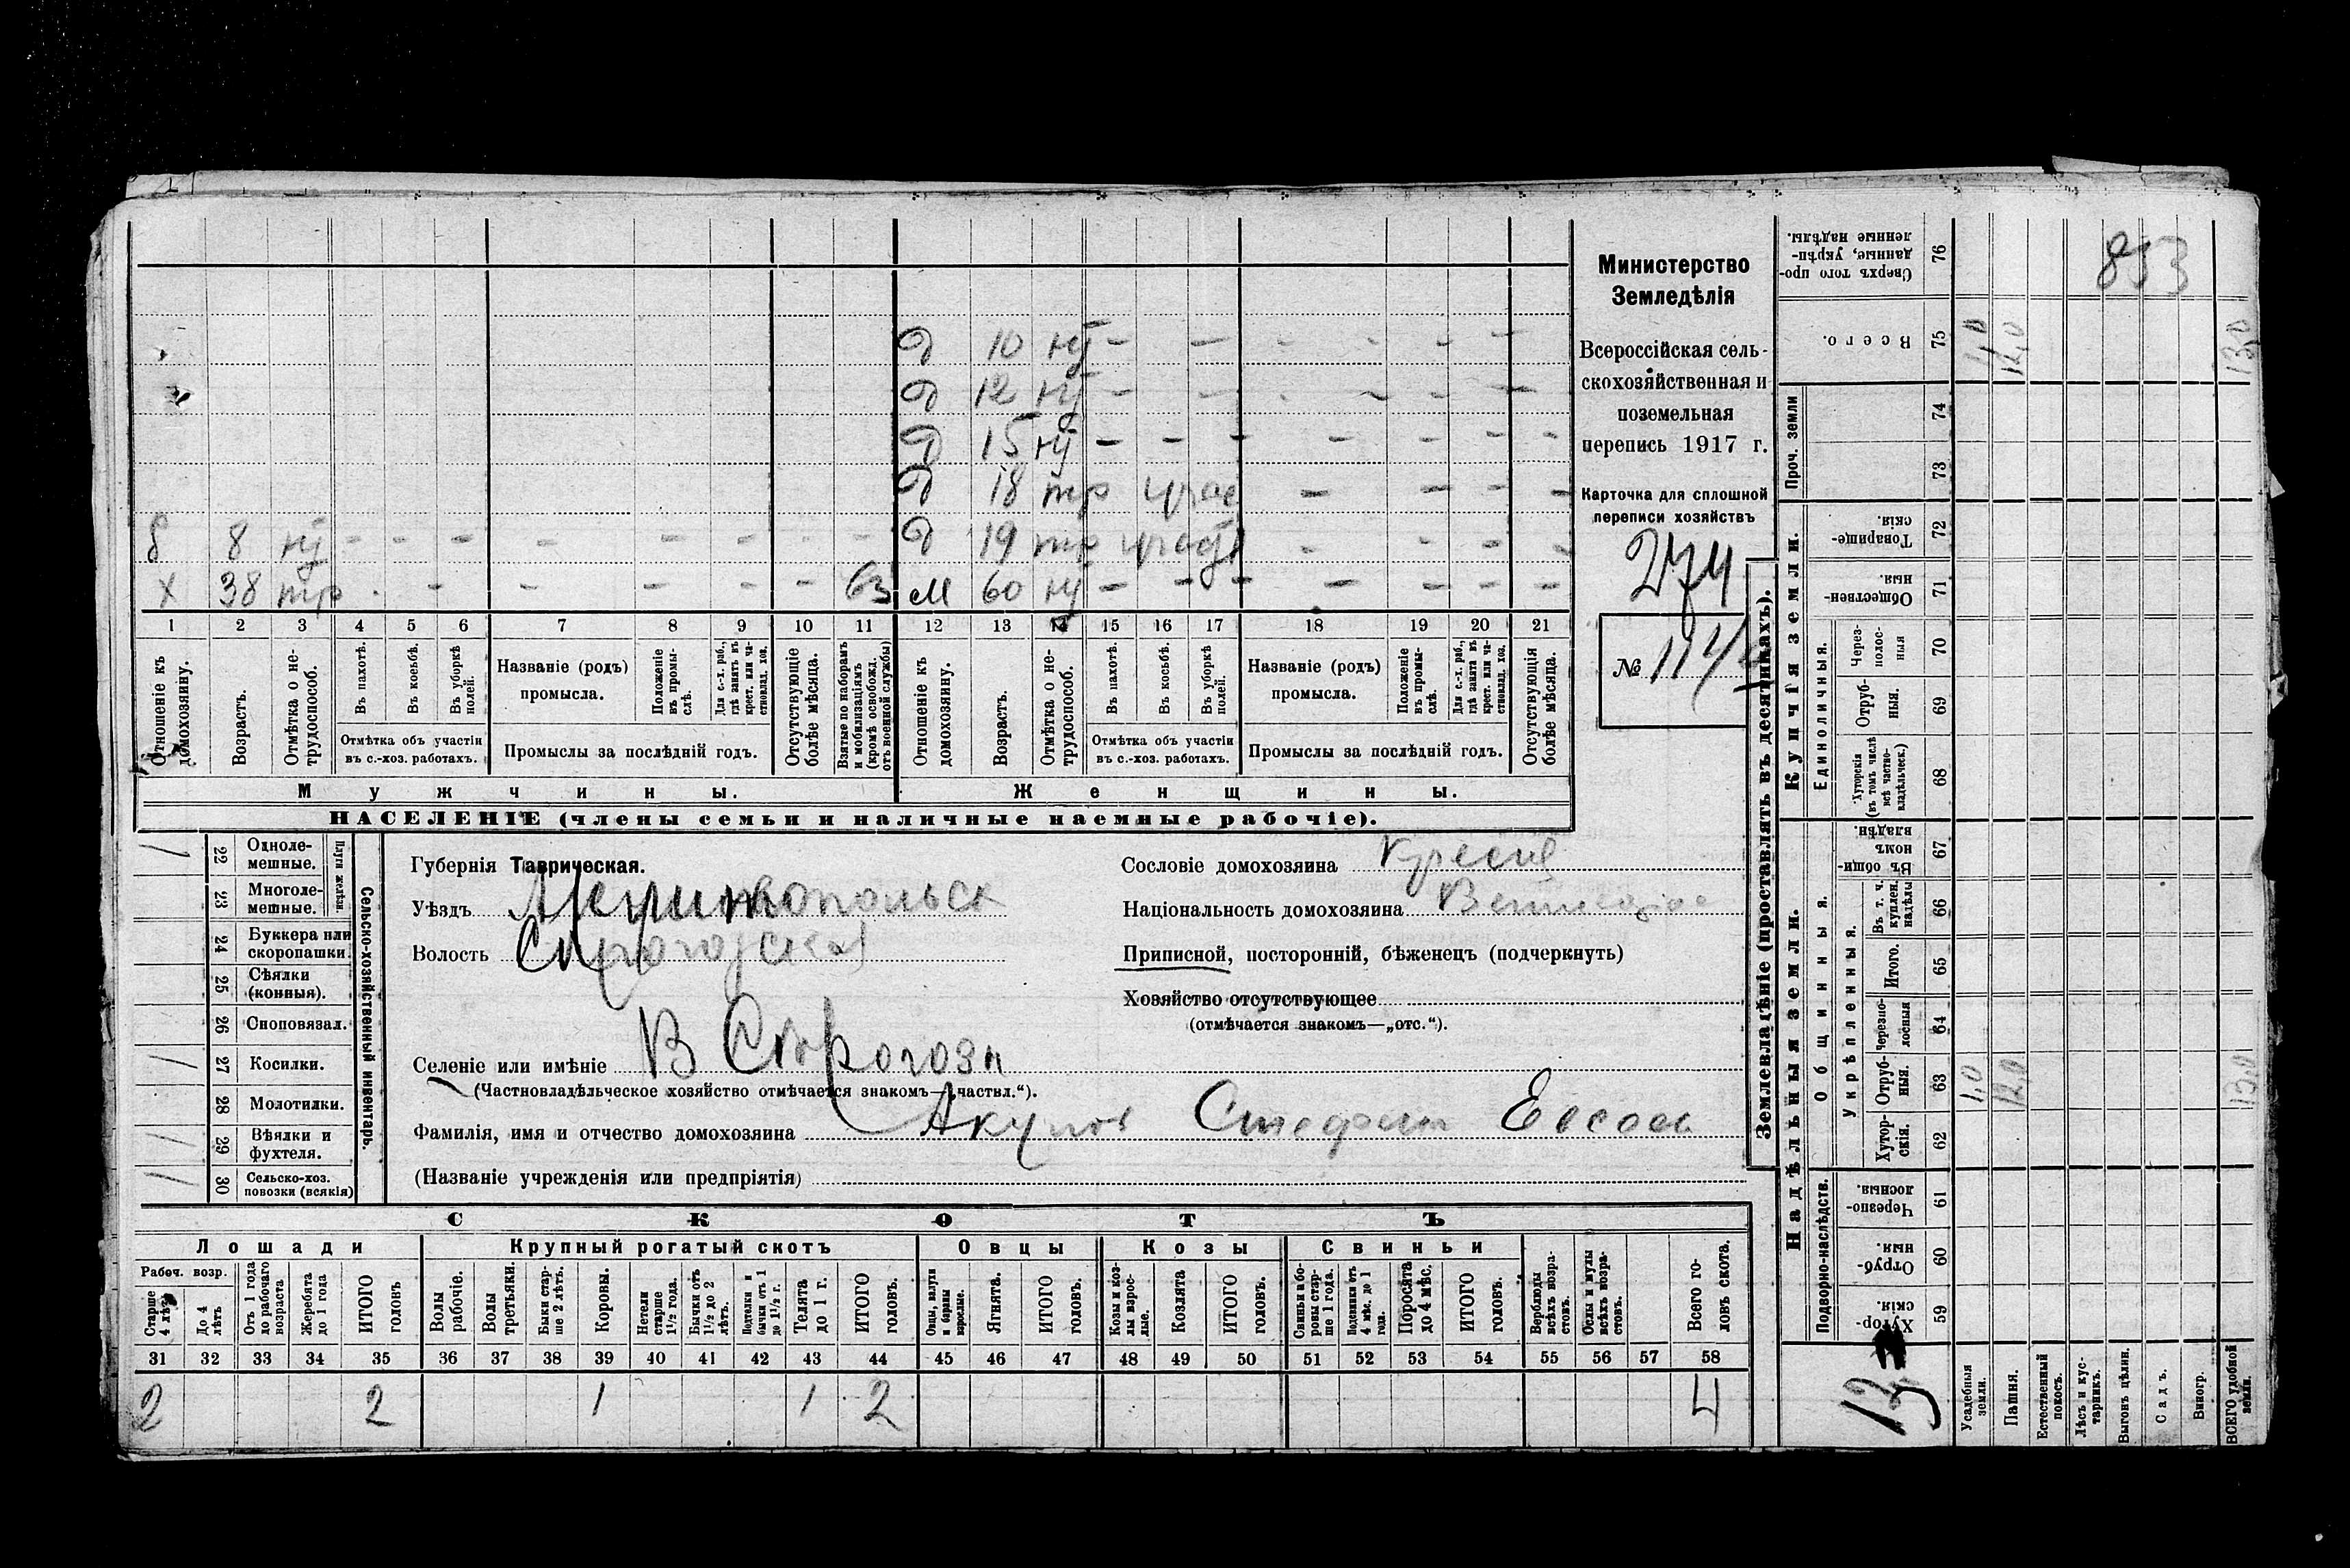 853
Министерство
Земледѣлія
Всероссійская сель-
скохозяйственная и
поземельная
перепись 1917 г.
Карточка для сплошной
переписи хозяйствъ
274
№ 114
д 10 ну - - - - - -
д 12 ну - - - - - -
д 15 ну - - - - - - -
д 18 тр - - - -
8 ну - - - - - - - - д 19 тр - - - -
х 38 тр - - - - - - 63 м 60 ну - - - - - - -
1 2 3 4 5 6 7 8 9 10 11 12 13 14 15 16 17 18 19 20 21
Отношеніе къ домохозяину.
Возрастъ.
Отмѣтка о не-трудоспособ.
Въ пахотѣ.
Въ косьбѣ.
Въ уборкѣ полей.
Отмѣтка объ участіи
въ с.-хоз. работахъ.
Названіе (родъ)
промысла.
Положеніе въ промы-слѣ.
Для с.-х. раб., гдѣ занятъ въ крест. или ча-стновлад. хоз.
Промыслы за послѣдній годъ.
Отсутствующіе болѣе мѣсяца.
Взятые по наборамъ и мобилизаціямъ (кромѣ освобожд. отъ военной службы)
Отношеніе къ домохозяину.
Возрастъ.
Отмѣтка о не-трудоспособ.
Въ пахотѣ.
Въ косьбѣ.
Въ уборкѣ полей.
Отмѣтка объ участіи
въ с.-хоз. работахъ.
Названіе (родъ)
промысла.
Положеніе въ промы-слѣ.
Для с.-х. раб., гдѣ занята въ крест. или ча-стновлад. хоз.
Промыслы за послѣдній годъ.
Отсутствующія болѣе мѣсяца.
Мужчины. Женщины.
НАСЕЛЕНІЕ (члены семьи и наличные наемные рабочіе).
Сельско-хозяйственный инвентарь.
Плуги желѣзн.
1 22 Одноле-мешные.
23 Многоле-мешные.
24 Буккера или скоропашки.
25 Сѣялки (конныя).
26 Сноповязал.
1 27 Косилки.
28 Молотилки.
29 Вѣялки и фухтеля.
30 Сельско-хоз. повозки (всякія)
Губернія Таврическая.
Уѣздъ
Волость
Селеніе или имѣніе В Сѣрогозы
(Частновладѣльческое хозяйство отмѣчается знакомъ—„частвл.“).
Фамилія, имя и отчество домохозяина Акупов Стефан
(Названіе учрежденія или предпріятія)
Сословіе домохозяина
Національность домохозяина
Приписной, посторонній, бѣженецъ (подчеркнуть)
Хозяйство отсутствующее
(отмѣчается знакомъ—„отс.“).
СКОТЪ
Лошади Крупный рогатый скотъ Овцы Козы Свиньи
Рабоч. возр.
Старше 4 лѣтъ
До 4 лѣтъ
Отъ 1 года до рабочаго возраста
Жеребята до 1 года
ИТОГО головъ
Волы рабочіе.
Волы третьяки.
Быки стар-ше 2 лѣтъ.
Коровы.
Нетели старше 1½ года.
Бычки отъ 1½ до 2 лѣтъ.
Подтелки и бычки отъ 1 до 1½ г.
Телята до 1 г.
ИТОГО головъ.
Овцы, валухи и бараны взрослые.
Ягнята.
ИТОГО головъ.
Козы и коз-лы взрос-лые.
Козлята
ИТОГО головъ.
Свиньи и бо-ровы стар-ше 1 года.
Подсвинки отъ 4 мѣс. до 1 года.
Поросята до 4 мѣс.
ИТОГО головъ.
Верблюды всѣхъ возра-стовъ.
Ослы и мулы всѣхъ возра-стовъ.
Всего го-ловъ скота.
31 32 33 34 35 36 37 38 39 40 41 42 43 44 45 46 47 48 49 50 51 52 53 54 55 56 57 58
2 2 1 1 2 4
Землевладѣніе (проставлять въ десятинахъ).
Надѣльныя земли. Купчія земли. Проч. земли
Подворно-наслѣдств. Общинныя. Укрѣпленныя. Единоличныя.
Хутор-скія. 59
Отруб-ныя. 60
Черезпо-лосныя. 61
Хутор-скія. 62
Отруб-ныя. 63 1,0 12,0 13,0
Черезпо-лосныя 64
Итого. 65
Въ т. ч. куплен. надѣлы 66
Въ общин-номъ владѣн. 67
Хуторскія (въ томъ числѣ всѣ частно-владѣльческ.) 68
Отруб-ныя. 69
Через-полос-ныя 70
Обществен-ныя. 71
Товарище-скія. 72
73
74
Всего. 75 1,0 12,0 13,0
Сверхъ того про-данные, укрѣп-ленные надѣлы. 76
13
Усадебныя земли.
Пашня.
Естественный покосъ.
Лѣсъ и кус-тарникъ.
Выгонъ цѣлин.
Садъ.
Виногр.
ВСЕГО удобной земли.